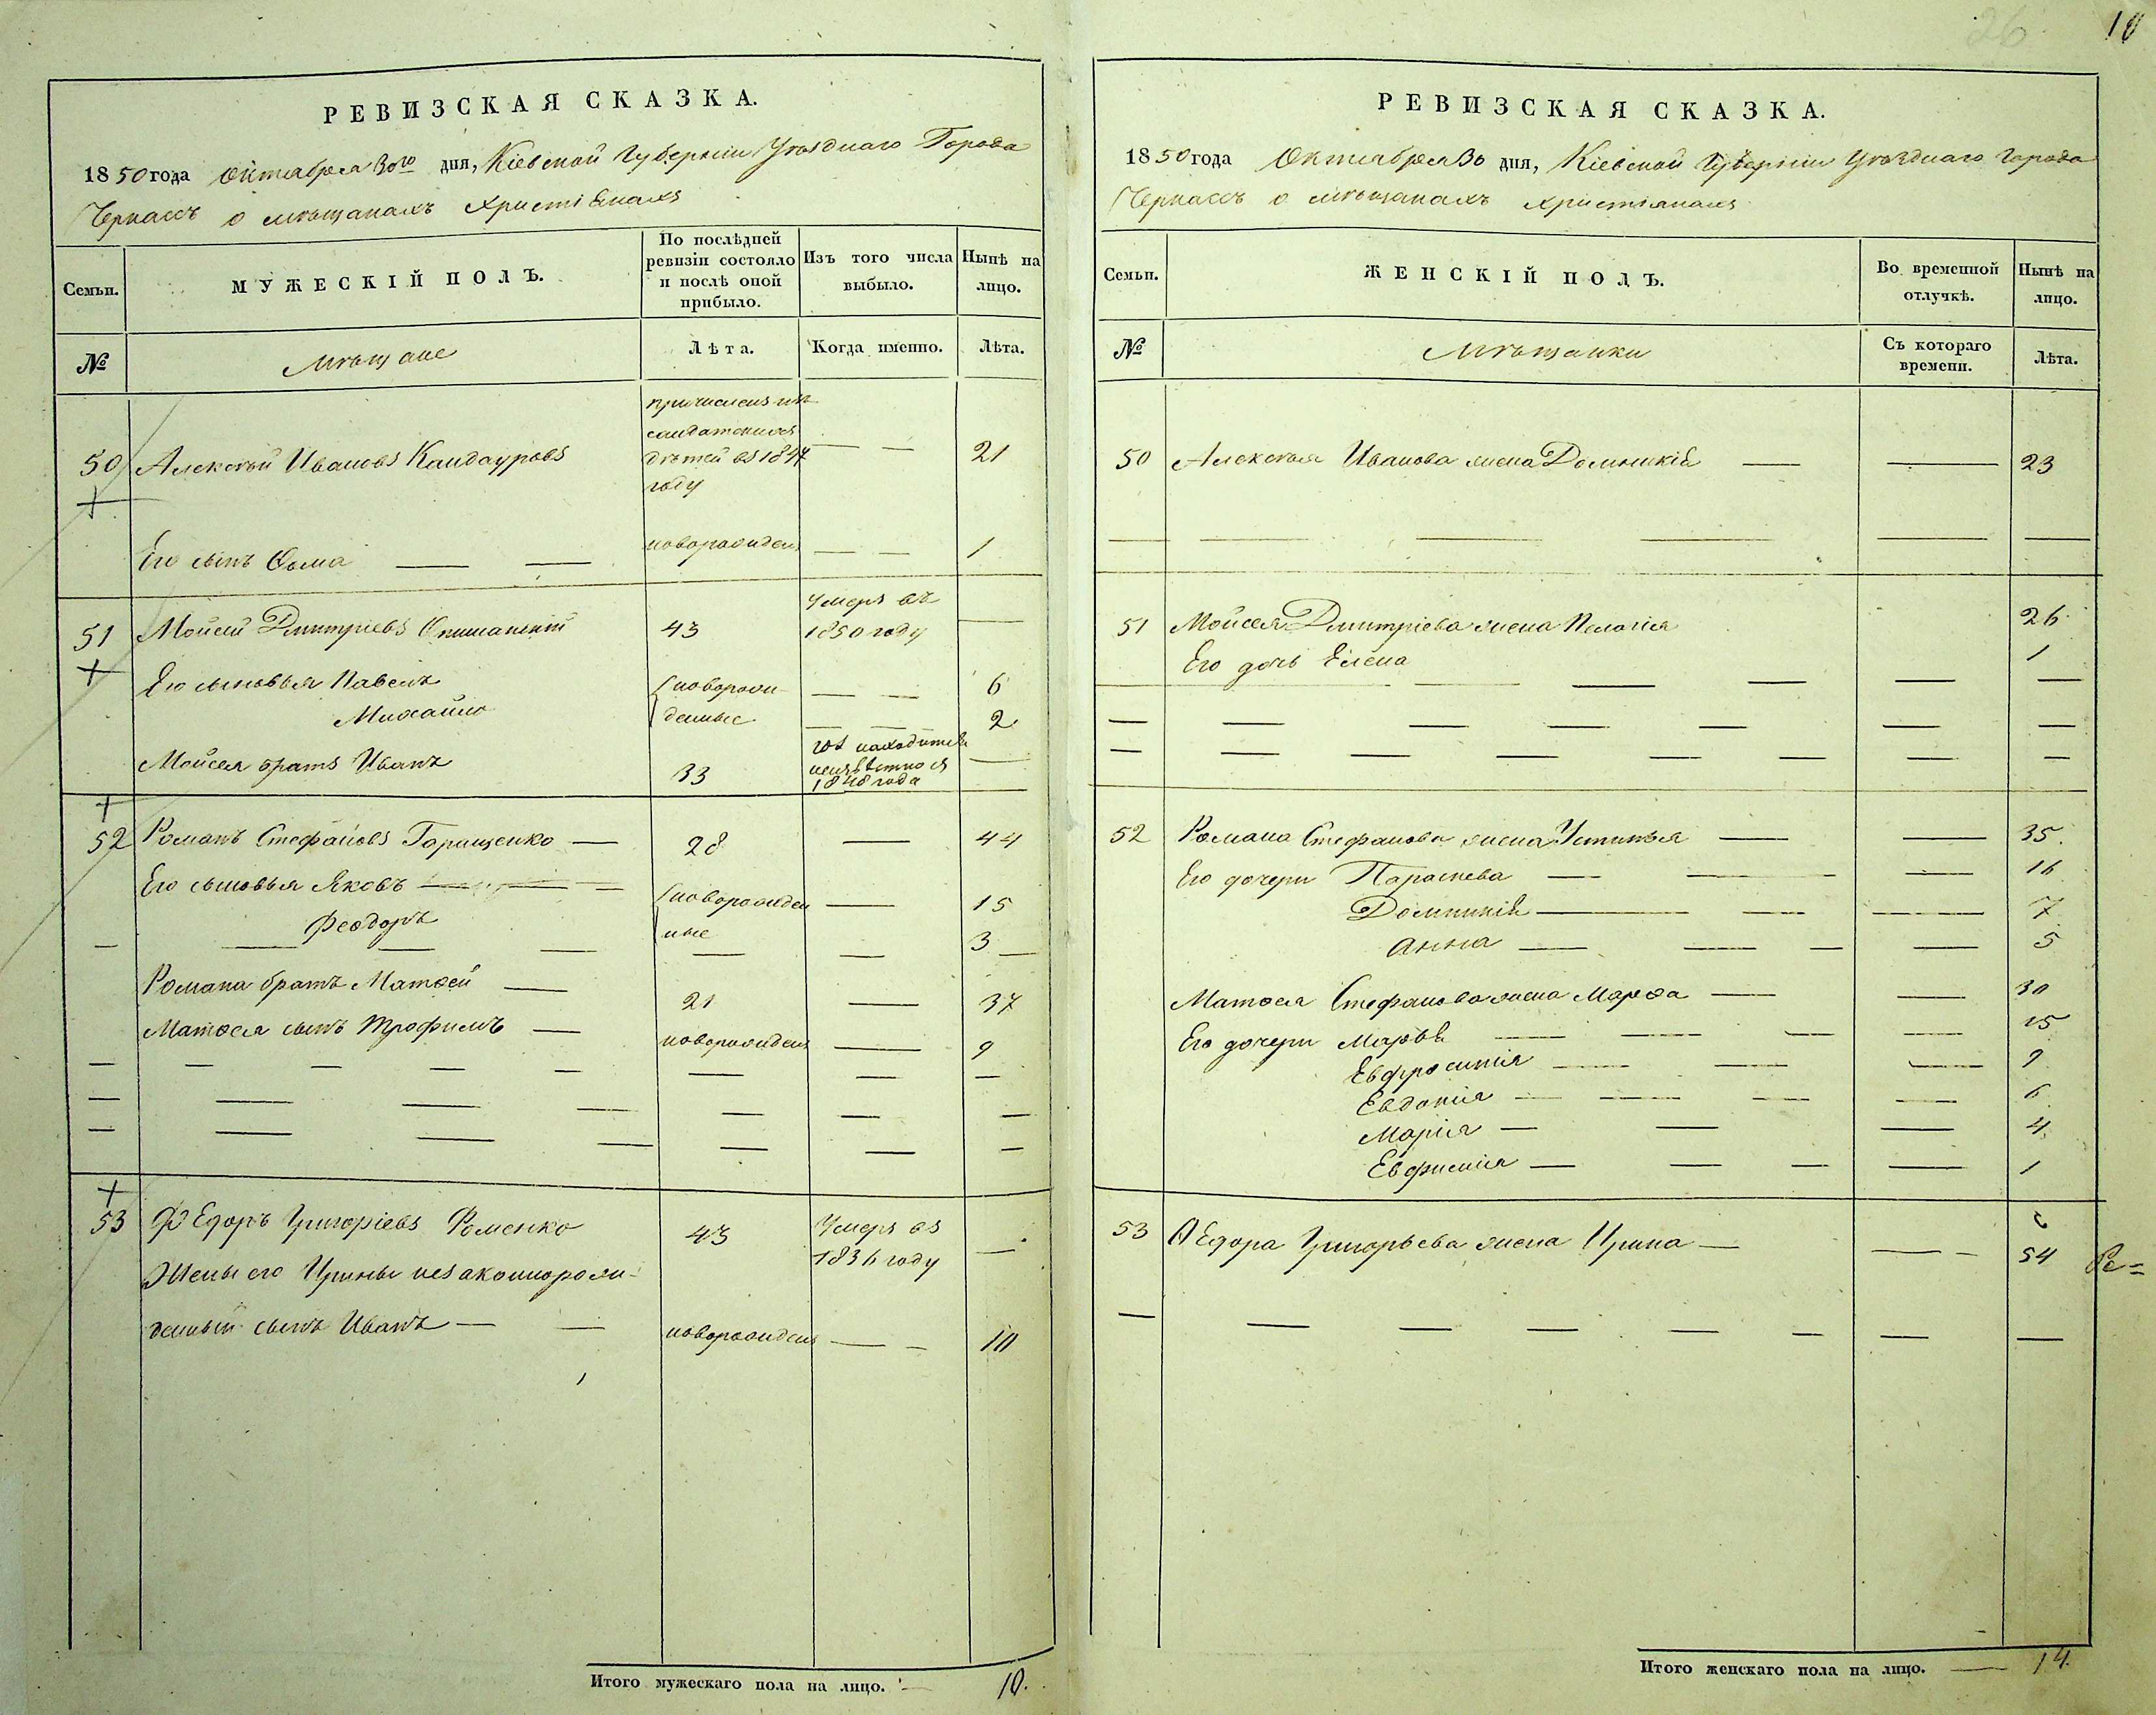 26
10
РЕВИЗСКАЯ СКАЗКА.
1850 года Октября 30го дня, Кіевской Губерніи Уѣзднаго Города
Черкассъ о мѣщанахъ христіанахъ
Семьи.
МУЖЕСКІЙ ПОЛЪ.
По послѣдней ревизіи состояло и послѣ оной прибыло.
Изъ того числа выбыло.
Нынѣ на лицо.
№
Мѣщане
Лѣта.
Когда именно.
Лѣта.
причисленъ изъ
солдатскихъ
50 Алексѣй Ивановъ Кандауровъ дѣтей въ 1847 — — 21
году
Его сынъ Ѳома — — новорожден — — 1
Умеръ въ
51 Мойсей Дмитріевъ 43 1850 году —
Его сыновья Павелъ новорож — — 6
Михайло денные — — 2.
Мойсея братъ Иванъ 33 находится неизвѣстно съ 1848 года —
52 Романъ Стефановъ Гаращенко — 28 — 44
Его сыновья Яковъ — — — новорожден — 15
Феодоръ ные 3
— — — — — — —
Романа братъ Матѳей — 21 — 37
Матѳея сынъ Трофимъ — новорожден — 9
— — — — — — — —
— — — — — — —
— — — — — — —
53 ФЕдоръ Григоріевъ Роменко 43 Умеръ въ
1836 году —
Жены его Ирины незаконнорож-
денный сынъ Иванъ — — новорожден — — 10
Итого мужескаго пола на лицо. — 10.
РЕВИЗСКАЯ СКАЗКА.
1850 года Октября 30 дня, Кіевской Губерніи Уѣзднаго Города
Черкассъ о мѣщанахъ христіанахъ
Семьи.
ЖЕНСКІЙ ПОЛЪ.
Во временной отлучкѣ.
Нынѣ на лицо.
№
Мѣщанки
Съ котораго времени.
Лѣта.
50 Алексѣя Иванова жена Домникія — — 23
— — — — — —
51 Мойсея Дмитріева жена Пелагія 26
Его дочь Елена 1
— — — — — —
— — — — — — —
— — — — — — — —
52 Романа Стефанова жена Устинья — — 35.
Его дочери Параскева — — — 16
Домникія — — — 7
Анна — — — — 5
Матѳея Стефанова жена Марѳа — — 30
Его дочери Марья — — — — 15
Евфросинія — — — 9
Евдокія — — — — 6
Марія — — — 4.
Евфимія — — — — 1
53 ѲЕдора Григорьева жена Ирина — — — 54
— — — — — — — —
Ре=
Итого женскаго пола на лицо. — 14.